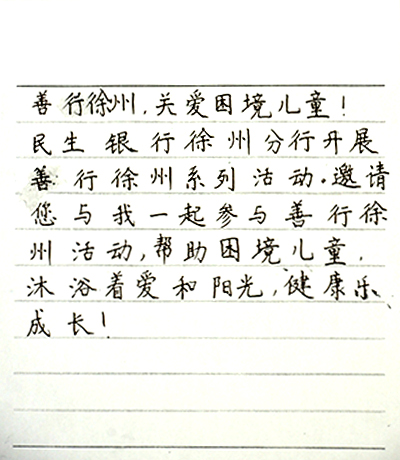 善行徐州,关爱困境儿童!
民生银行徐州分行开展
善行徐州系列活动.邀请
您与我一起参与善行徐
州活动,帮助困境儿童,
沐浴着爱和阳光,健康乐
成长!